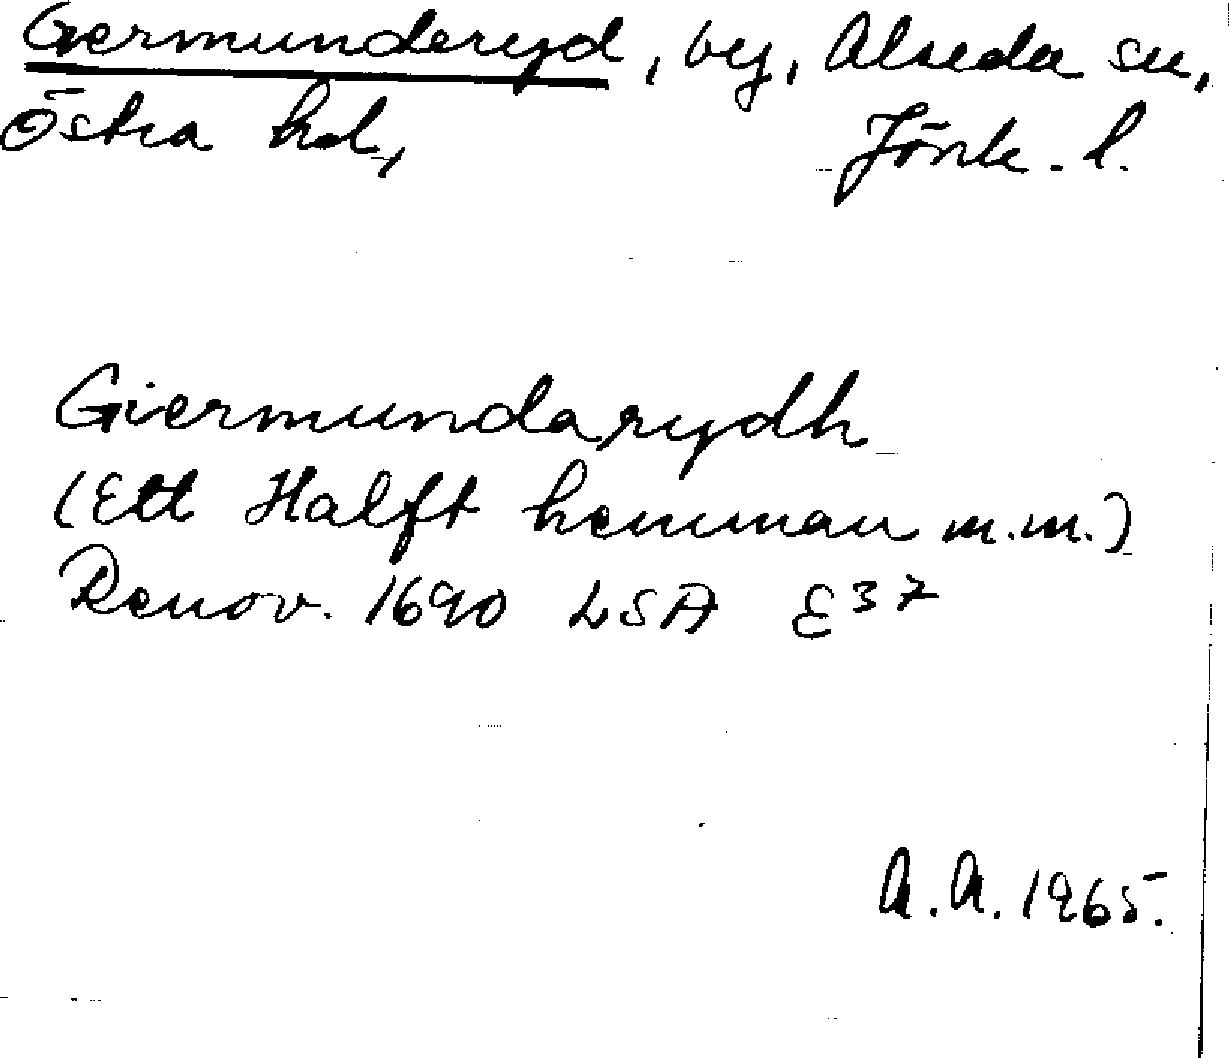 Germunderyd, by, Alseda sn,
Östra hd, Jönk. l.
Giermundarydh
(Ett Halft hemman m.m.)
Renov. 1690 LSA E37
A.A. 1965.